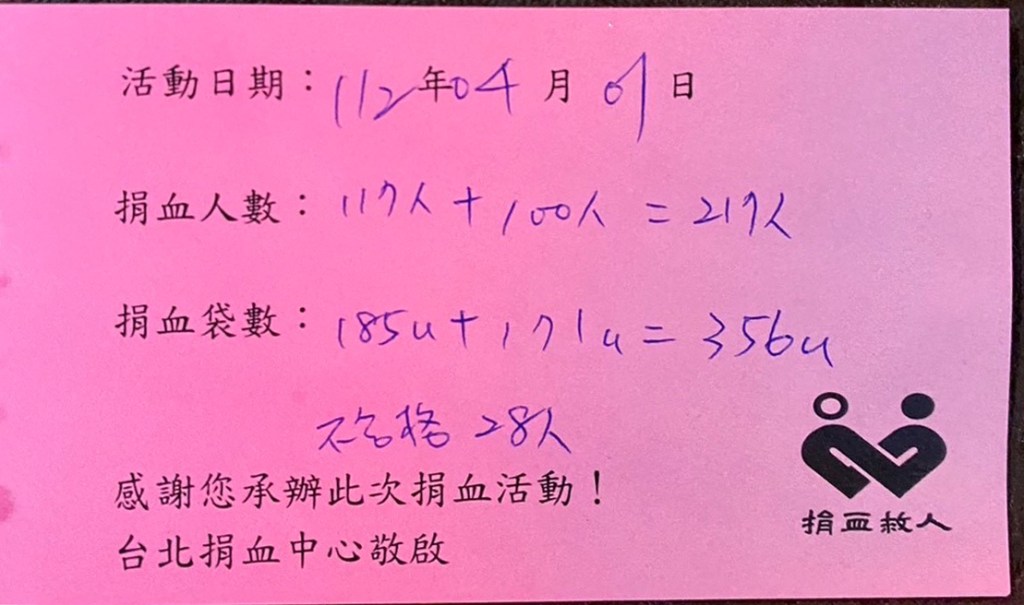 活動日期：112年04月01日
捐血人數：117人+100人=217人
捐血袋數：185u+171u=356u
不合格 28人
感謝您承辦此次捐血活動！
台北捐血中心敬啟
捐血救人